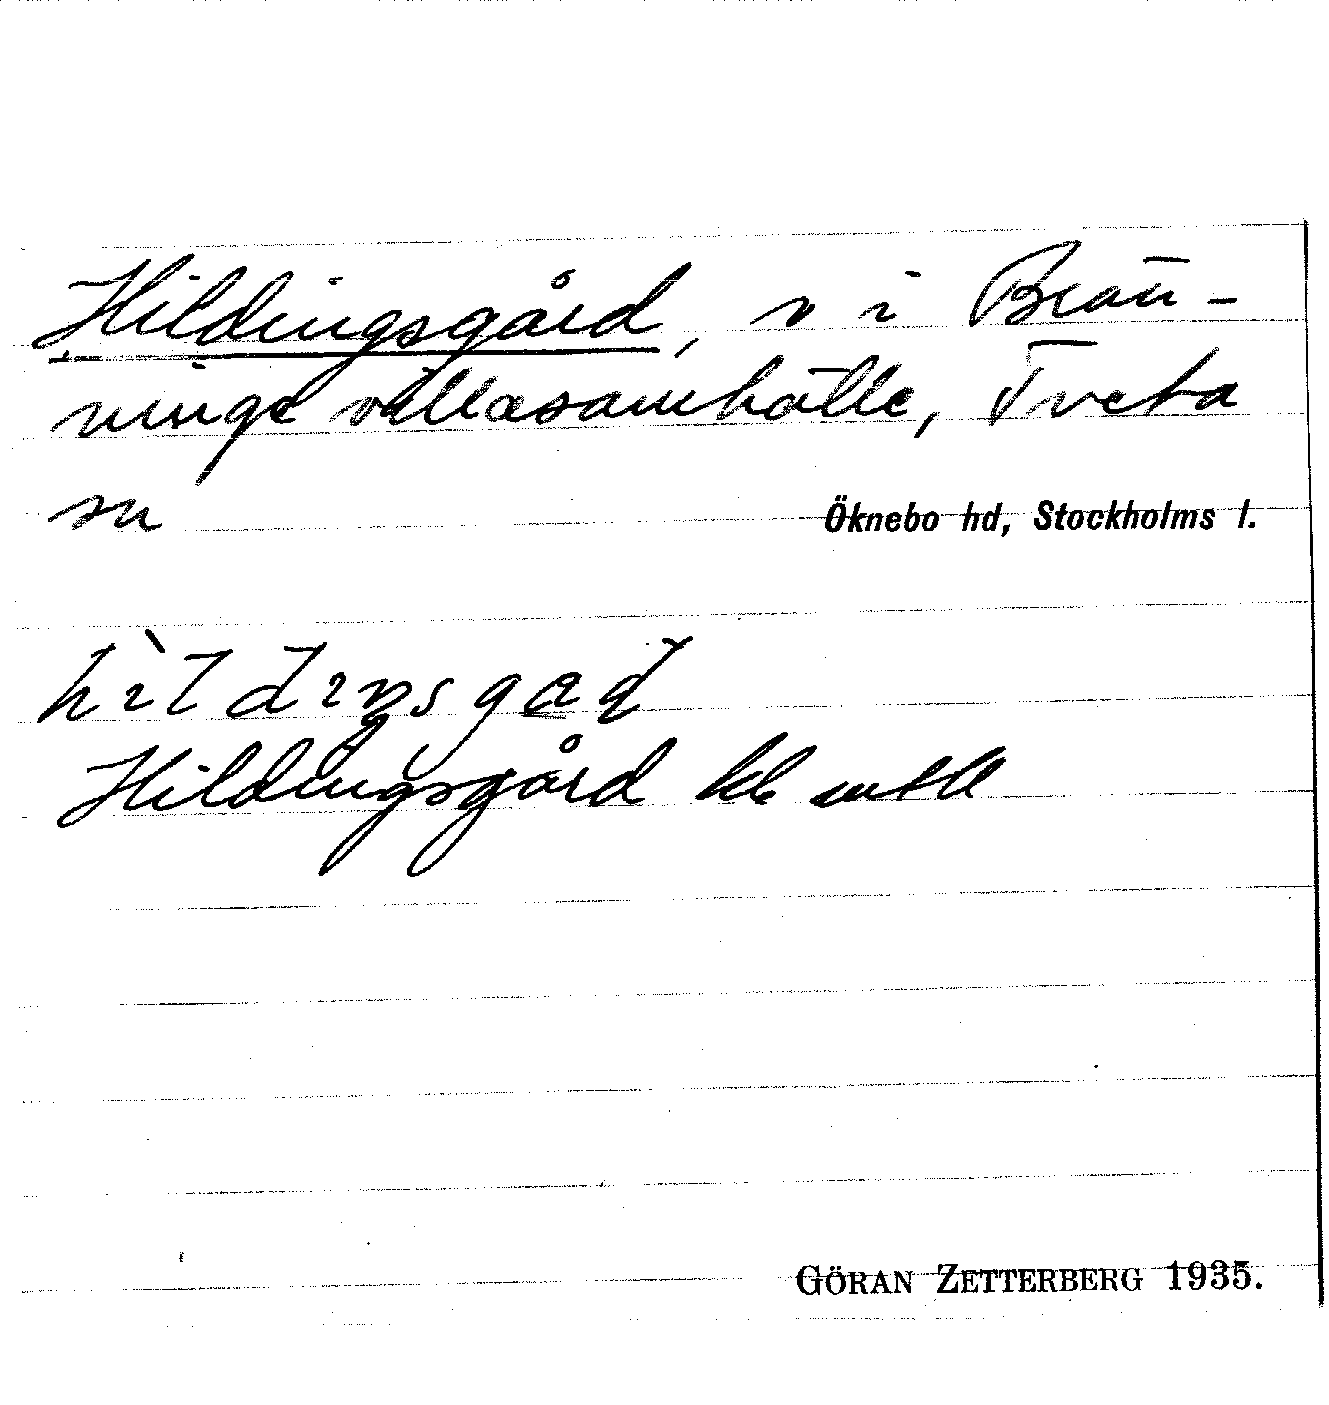 Hildingsgård, v i Brän-
ninge villasamhälle, Tveta
sn
Öknebo hd, Stockholms l.
hìldiŋsgaɖ
Hildingsgård
GÖRAN ZETTERBERG 1935.